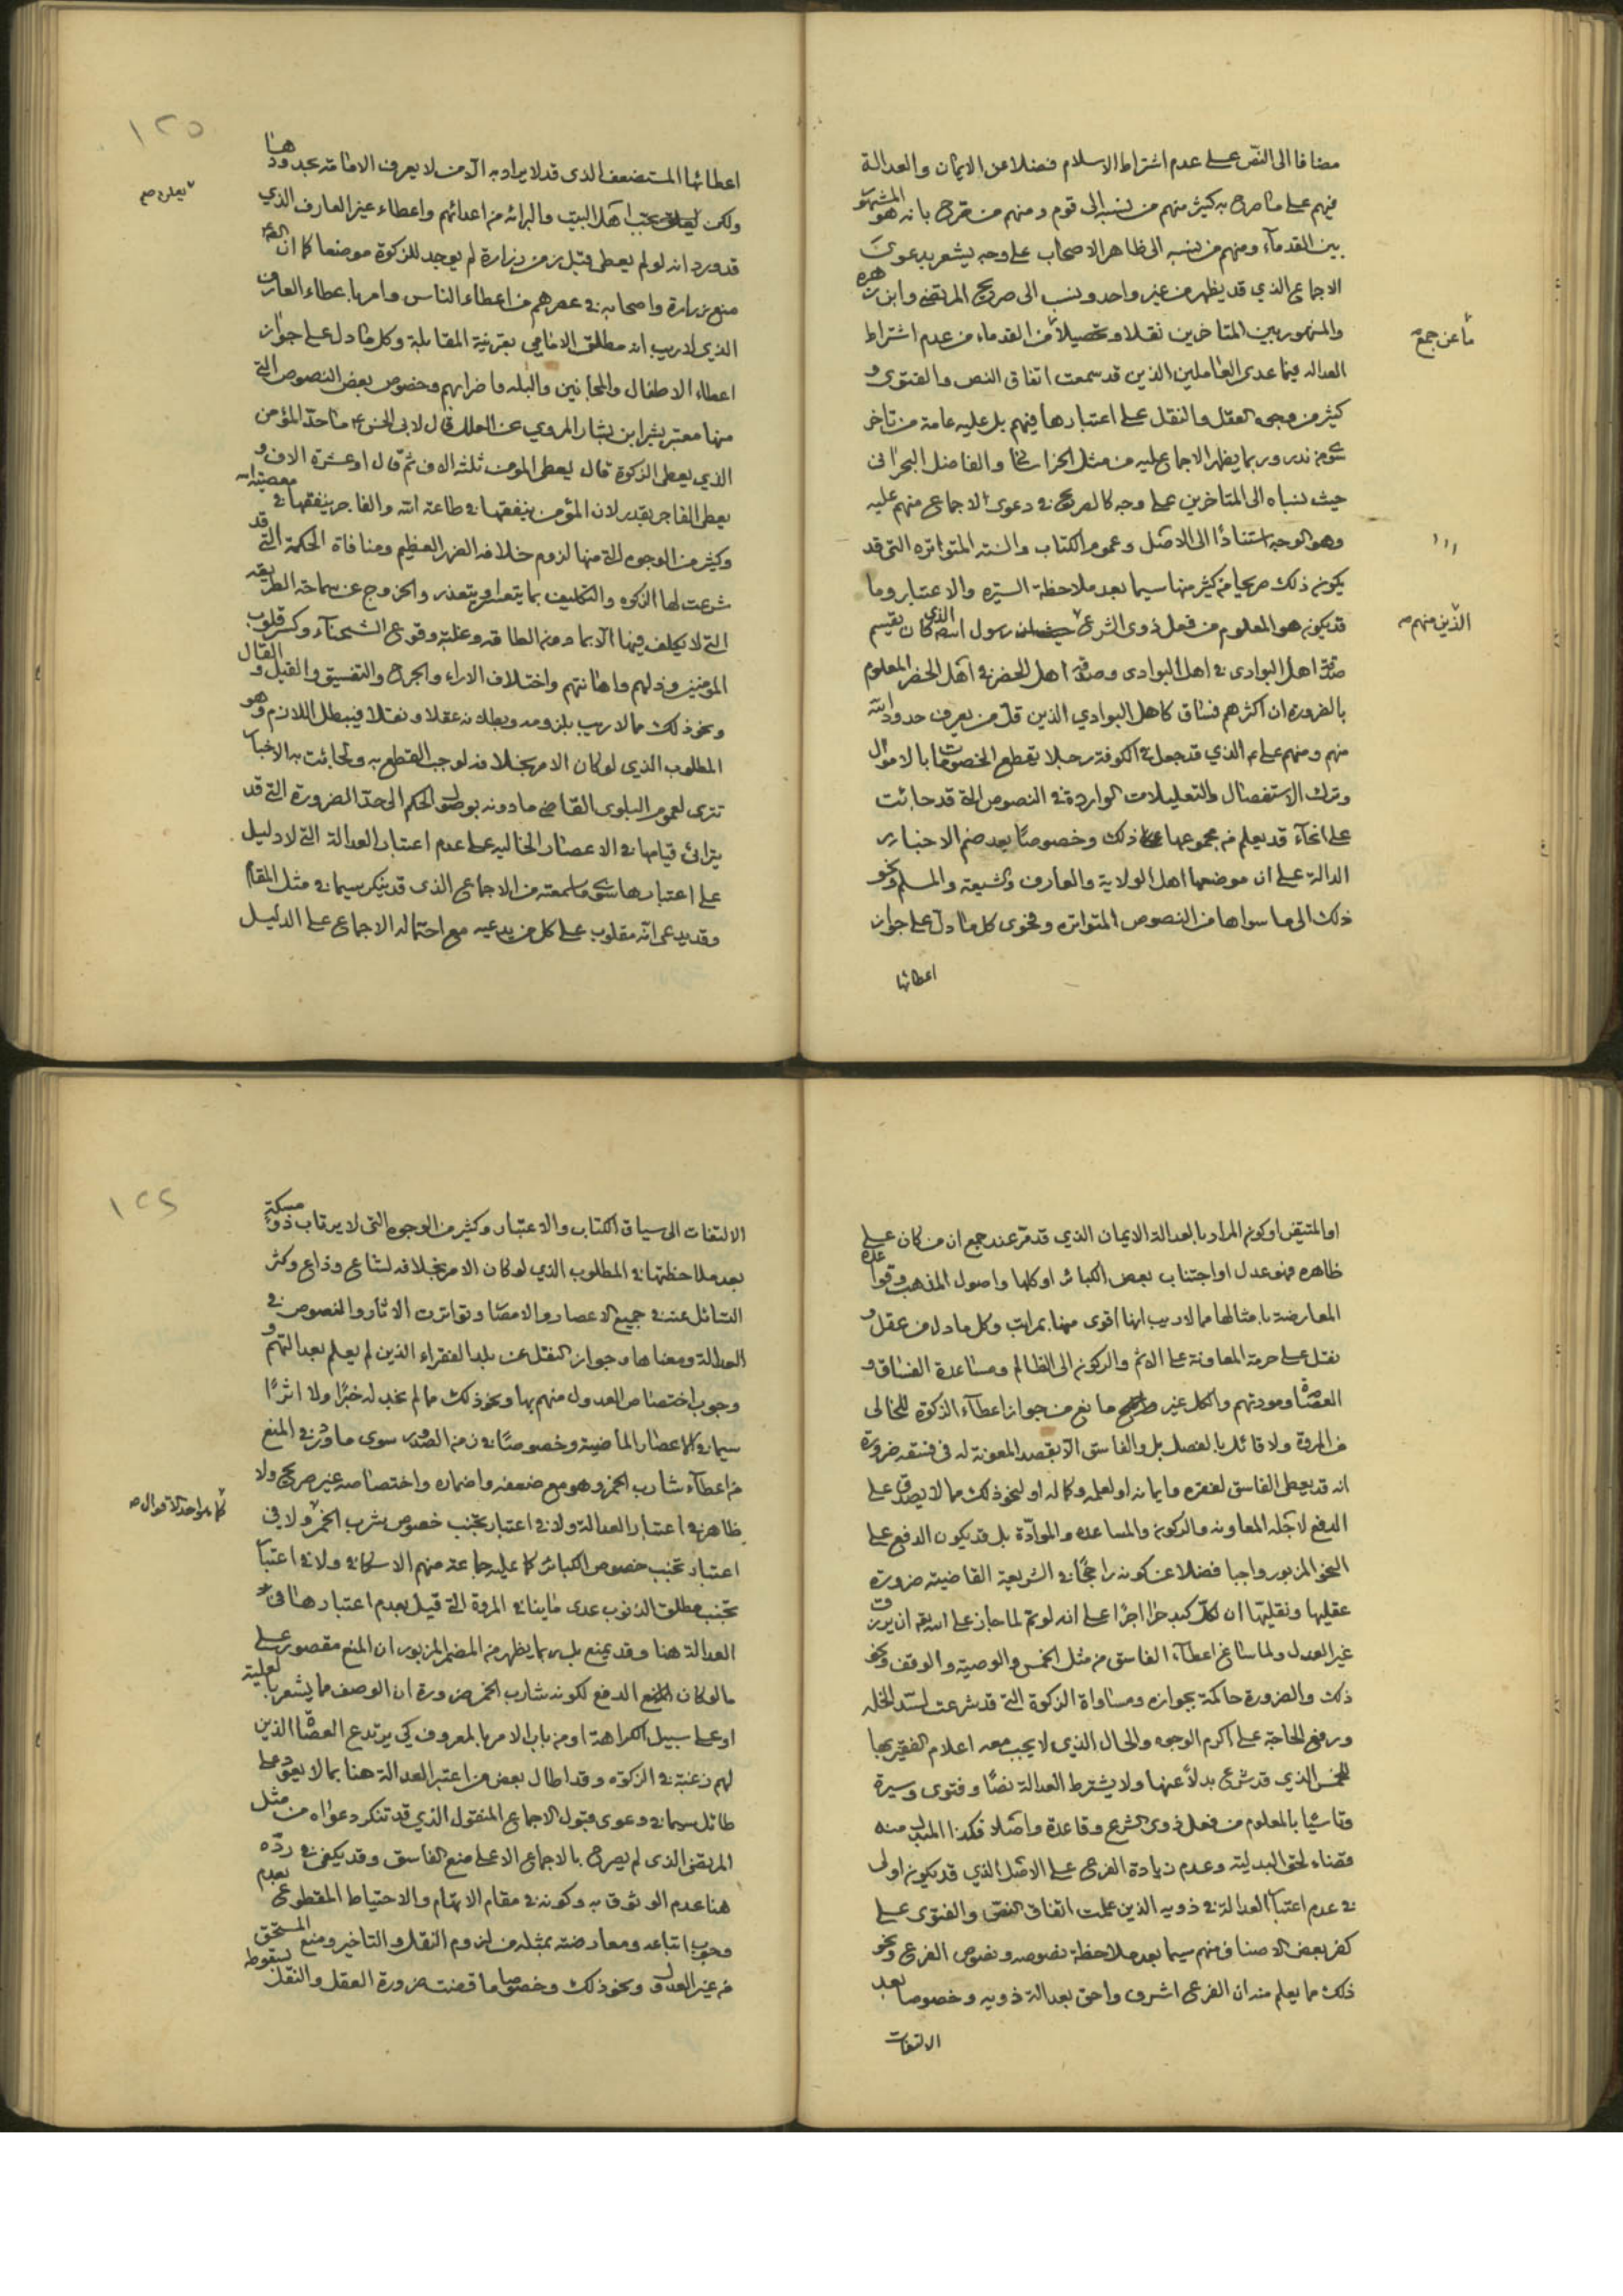 مضافا الى النص على عدم اشتراط الاسلام فضلا عن الايمان والعدالة
فيهم على ما صرح به كثير منهم من نسبه الى قوم ومنهم من صرح بانه هو المشهور
بين القدماء ومنهم من نسبه الى ظاهر الاصحاب على وجه يشعر بدعوى
الاجماع الذي قد يظهر من غير واحد ونسب الى صريح المرتضى وابن زهره
والمشهور بين المتاخرين نقلا وتحصيلا من القدماء من عدم اشتراط
ما عن جمع
العدالة فيما عدى العاملين الذين قد سمعت اتفاق النص والفتوى و
كثير من وجوه العقل والنقل على اعتبارها فيهم بل عليه عامة من تاخر
سوى من ندر وربما يظهر الاجماع عليه من مثل الخراساني والفاضل البحراني
حيث نسباه الى المتاخرين على وجه كالصريح في دعوى الاجماع منهم عليه
وهو الوجه استنادا الى الاصل وعموم الكتاب والسنة المتواتره التي قد
يكون ذلك صريحا من كثير منها سيما بعد ملاحظة السيره والاعتبار وما
قد يكون هو المعلوم من فعل ذوى الشرع رسول الله الذي كان يقسم
الذين منهم
صدقة اهل البوادى في اهل البوادى وصدقة اهل الحضر في اهل الحضر المعلوم
بالضرورة ان اكثرهم فساق كاهل البوادي الذين قل من يعرف حدود الله
منهم ومنهم على الذي قد جعل في الكوفة رجلا يقطع الخصومات بالاموال
وترك الاستفصال والتعليلات الواردة في النصوص التي قد جائت
على انحاء قد يعلم من مجموعها ذلك وخصوصا بعد ضم الاخبار
الدالة على ان موضعها اهل الولاية والعارف والشيعة والمسلم ونحو
ذلك الى ما سواها من النصوص المتواتره وفحوى كل ما دل على جواز
اعطائها
١٢٥
اعطائها المستضعف الذى قد لا يراد به الا من لا يعرف الامامة بحدودها
ولكن يحب اهل البيت والبرائة من اعدائهم واعطاء غير العارف الذي
قد ورد انه لو لم يعطى قبل زمن زرارة لم يوجد للزكوة موضعا كما ان
منع زرارة واصحابه في عصرهم من اعطاء الناس وامر باعطاء العارف
الذي لا ريب انه مطلق الامامي بقرنية المقابلة وكل ما دل على جواز
اعطاء الاطفال والمجانين والبله واضرابهم وخصوص بعض النصوص التي
منها معتبر بشر ابن بشار المروي عن العلل قال لابى الحسن ع ما حد المؤمن
الذي يعطى الزكوة قال يعطى المؤمن ثلثه الاف ثم قال او عشرة الاف و
يعطى الفاجر بقدر لان المؤمن ينفقها في طاعة الله والفاجر ينفقها في معصيته
وكثير من الوجوه التي منها لزوم خلافه الضرر العظيم ومنافاة الحكمة التي قد
شرعت لها الزكوه والتكليف بما يتعسر ويتعذر والخروج عن سماحة الطريقه
التي لا يكلف فيها الا بما دون الطاقه وغلبة وقوع الشحناء وكسر قلوب
المؤمنين وذلهم واهانتهم واختلاف الاراء والجرح والتفسيق والقيل والقال
ونحو ذلك مما لا ريب بلزومه وبطلانه عقلا ونقلا فيبطل اللازم وهو
المطلوب الذى لو كان الامر بخلافه لوجب القطع به ولجائت به الاخبار
تترى لعموم البلوى القاضي مادونه بوصول الحكم الى حد الضرورة التي قد
يترائى قيامها في الاعصار الخاليه على عدم اعتبار العدالة التي لا دليل
على اعتبارها سوى ما سمعته من الاجماع الذى قد ينكر سيما في مثل المقام
وقد يدعى انه مقلوب على كل من يدعيه مع احتماله الاجماع على الدليل
او المتيقن او كون المراد بالعدالة الايمان الذي قد مر عند جمع ان من كان على
ظاهره فهو عدل او اجتناب بعض الكبائر او كلها واصول المذهب وقواعده
المعارضة بامثالها مما لا ريب انها اقوى منها بمراتب وكل ما دل من عقل و
نقل على حرمة المعاونة على الاثم والركون الى الظالم ومساعدة الفساق و
العصاة ومودتهم والكل غير مانع من جواز اعطاء الزكوة للخالى
من المروة ولا قائل بالفصل بل والفاسق الا بقصد المعونة له في فسقه ضرورة
انه قد يعطى الفاسق لفقره وايمانه او لعلمه وكماله او لنحو ذلك مما لا يصدق على
الدفع لاجله المعاونه والركون والمساعده والموادة بل قد يكون الدفع على
النحو المزبور واجبا فضلا عن كونه راجحا في الشريعة القاضيه ضرورة
عقليها ونقليها ان لكل كبد حرا اجرا على انه لو تم لما جاز على الله تع ان يرزق
غير العدل ولما ساغ اعطاء الفاسق من مثل الخمس والوصية والوقف ونحو
ذلك والضرورة حاكمة بجوازه ومساواة الزكوة التي قد شرعت لسد الخله
ورفع الحاجة على اكرم الوجوه والحال الذي لا يجب معه اعلام الفقير بها
للخمس الذي قد شرع بدلا عنها ولا يشترط العدالة نصا وفتوى وسيرة
وتاسيا بالمعلوم من فعل ذوى الشرع وقاعدة واصلا فكذا المبدل منه
قضاء لحق البدلية وعدم زيادة الفرع على الاصل الذي قد يكون اولى
في عدم اعتبار العدالة في ذويه الذين علمت اتفاق النص والفتوى على
كفر بعض الاصناف منهم سيما بعد ملاحظة نصوصه ونصوص الفرع ونحو
ذلك مما يعلم منه ان الفرع اشرف واحق بعدالة ذويه وخصوصا بعد
الالتفات
١٢٦
الالتفات الى سياق الكتاب والاعتبار وكثير من الوجوه التي لا يرتاب ذو مسكة
بعد ملاحظتها في المطلوب الذي لو كان الامر بخلافه لشاع وذاع وكثر
التسائل عنه في جميع الاعصار والامصار وتواترت الاثار والنصوص في
العدالة ومعناها وجواز النقل عن بلد الفقراء الذين لم يعلم بعدالتهم و
وجوب اختصاص العدول منهم بها ونحو ذلك مما لم نجد له خبرا ولا اثرا
سيما في الاعصار الماضية وخصوصا في زمن الصدور سوى ما ورد في المنع
من اعطاء شارب الخمر وهو مع ضعفه واضماره واختصاصه غير صريح ولا
ظاهر في اعتبار العدالة ولا في اعتبار تجنب خصوص شرب الخمر ولا في
كما هو احد الاقوال
اعتبار تجنب خصوص الكبائر كما عليه جماعة منهم الاسكافي ولا في اعتبار
تجنب مطلق الذنوب عدى ما ينافي المروة التي قيل بعدم اعتبارها في
العدالة هنا وقد يمنع بل ربما يظهر من المضمر المزبور ان المنع مقصور على
ما لو كان الدفع لكونه شارب الخمر ضرورة ان الوصف مما يشعر بالعلية
او على سبيل الكراهة او من باب الامر بالمعروف كي يرتدع العصاة الذين
لهم رغبة في الزكوة وقد اطال بعض من اعتبر العدالة هنا بما لا يعود على
طائل سيما في دعوى قبول الاجماع المنقول الذي قد تنكر دعواه من مثل
المرتضى الذى لم يصرح بالاجماع الا على منع الفاسق وقد يكفى في رده
هنا عدم الوثوق به وكونه في مقام الاتهام والاحتياط المقطوع بعدم
وجوب اتباعه ومعارضته بمثله من لزوم النقل والتاخير ومنع المستحق
من غير العدول ونحو ذلك وخصوصا ما قضت ضرورة العقل والنقل بسقوطه